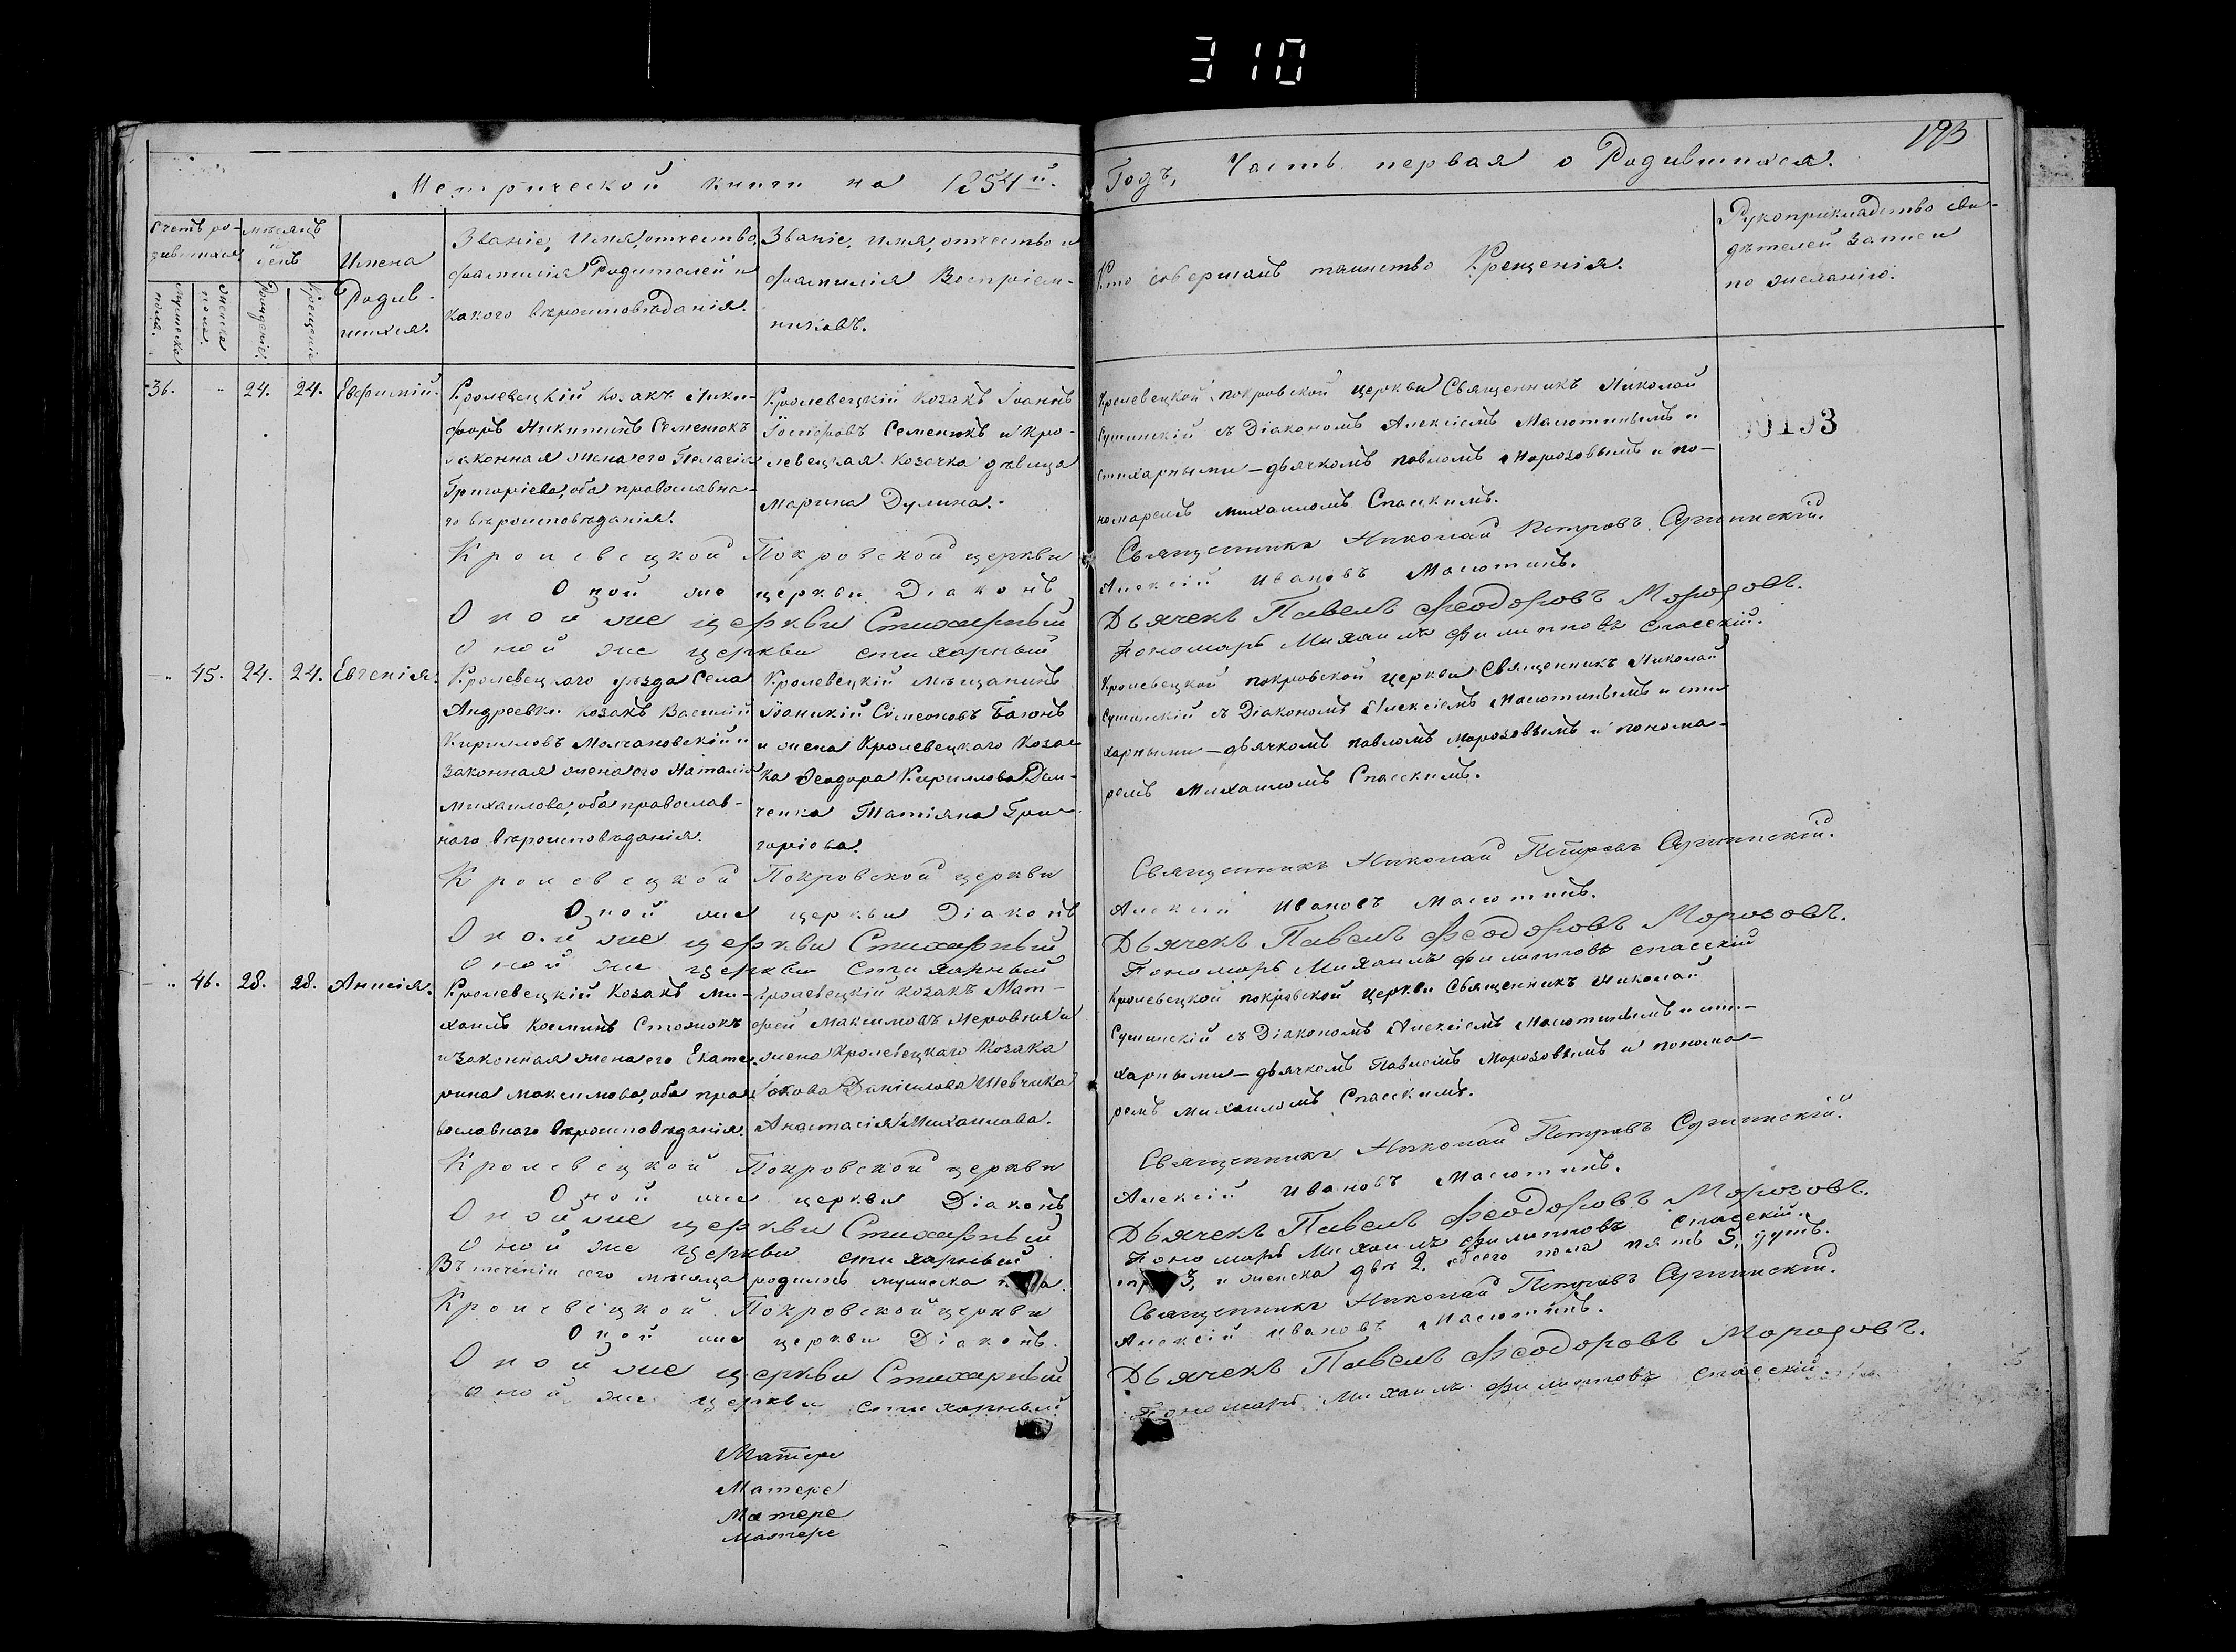 310
193
Метрической книги на 1854й.
Годъ, Часть первая о Родившихся.
Счетъ родившихся
мѣсяцъ и день
мужеска пола.
женска пола.
Рожденіе.
Крещеніе
Имена Родившихся.
Званіе, Имя, отчество,
фамилія Родителей и
какого вѣроисповѣданія.
Званіе, имя, отчество и
фамилія Воспріем-
никовъ.
Кто совершалъ таинство Крещенія.
Рукоприкладство сви-
дѣтелей записи
по желанію.
36. " 24. 24. Евфимій.
Кролевецкій козакъ Ники-
форъ Никитинъ Семенюкъ
законная жена его Пелагія
Григоріева, оба православна-
го вѣроисповѣданія.
Кролевецкій козакъ Іоаннъ
Іосифовъ Семенюкъ и Кро-
левецкая козачка дѣвица
Марина Дулина.
Кролевецкой покровской церкви Священникъ Николай
Сушинскій съ Діакономъ Алексіемъ Масютинымъ и
стихарными – дьячкомъ павломъ Морозовымъ и по-
номаремъ михаиломъ Спасскимъ.
00193
Кролевецкой Покровской церкви Священникъ Николай Петровъ Сушинскій.
Оной же церкви Діаконъ Алексій Ивановъ Масютинъ.
Оной же церкви Стихарный Дьячекъ Павелъ Феодоровъ Морозовъ.
Оной же церкви стихарный Пономарь Михаилъ Филипповъ Спасскій.
" 45. 24. 24. Евгенія.
Кролевецкаго уѣзда Села
Андреевки козакъ Василій
Кирилловъ Молчановскій и
законная жена его Наталія
Михаилова, оба православ-
наго вѣроисповѣданія.
Кролевецкій мѣщанинъ
Іоанникій Симеоновъ Баюнъ
и жена Кролевецкаго Коза-
ка Феодора Кириллова Дем-
ченка Татіяна Гри-
горіева.
Кролевецкой покровской церкви Священникъ Николай
Сушинскій съ Діакономъ Алексіемъ Масютинымъ и сти-
харными – дьячкомъ павломъ морозовымъ и понома-
ремъ Михаиломъ Спасскимъ.
Кролевецкой Покровской церкви Священникъ Николай Петровъ Сушинскій.
Оной же церкви Діаконъ Алексій Ивановъ Масютинъ.
Оной же церкви Стихарный Дьячекъ Павелъ Феодоровъ Морозовъ.
Оной же церкви стихарный Пономарь Михаилъ Филипповъ Спасскій
" 46. 28. 28. Анисія.
Кролевецкій Козакъ Ми-
хаилъ Косминъ Стожокъ
и законная жена его Екате-
рина Максимова, оба пра-
вославнаго вѣроисповѣданія.
Кролевецкій козакъ Мат-
фей Максимовъ Неровня и
жена Кролевецкаго Козака
Іакова Даніилова Шевчика
Анастасія Михаилова.
Кролевецкой покровской церкви Священникъ Николай
Сушинскій съ Діакономъ Алексіемъ Масютинымъ и сти-
харными – дьячкомъ Павломъ Морозовымъ и понома-
ремъ михаиломъ Спасскимъ.
Кролевецкой Покровской церкви Священникъ Николай Петровъ Сушинскій.
Оной же церкви Діаконъ Алексій Ивановъ Масютинъ.
Оной же церкви Стихарный Дьячекъ Павелъ Феодоровъ Морозовъ.
Оной же церкви стихарный Пономарь Михаилъ Филипповъ Спасскій.
Въ теченіи сего мѣсяца родилось мужеска пола три 3, и женска двѣ 2. обоего пола пять 5, душъ.
Кролевецкой Покровской церкви Священникъ Николай Петровъ Сушинскій.
Оной же церкви Діаконъ. Алексій Ивановъ Масютинъ.
Оной же церкви Стихарный Дьячекъ Павелъ Феодоровъ Морозовъ.
Оной же церкви стихарный Пономарь Михаилъ Филипповъ Спасскій.
Матере
Матере
Матере
Матере